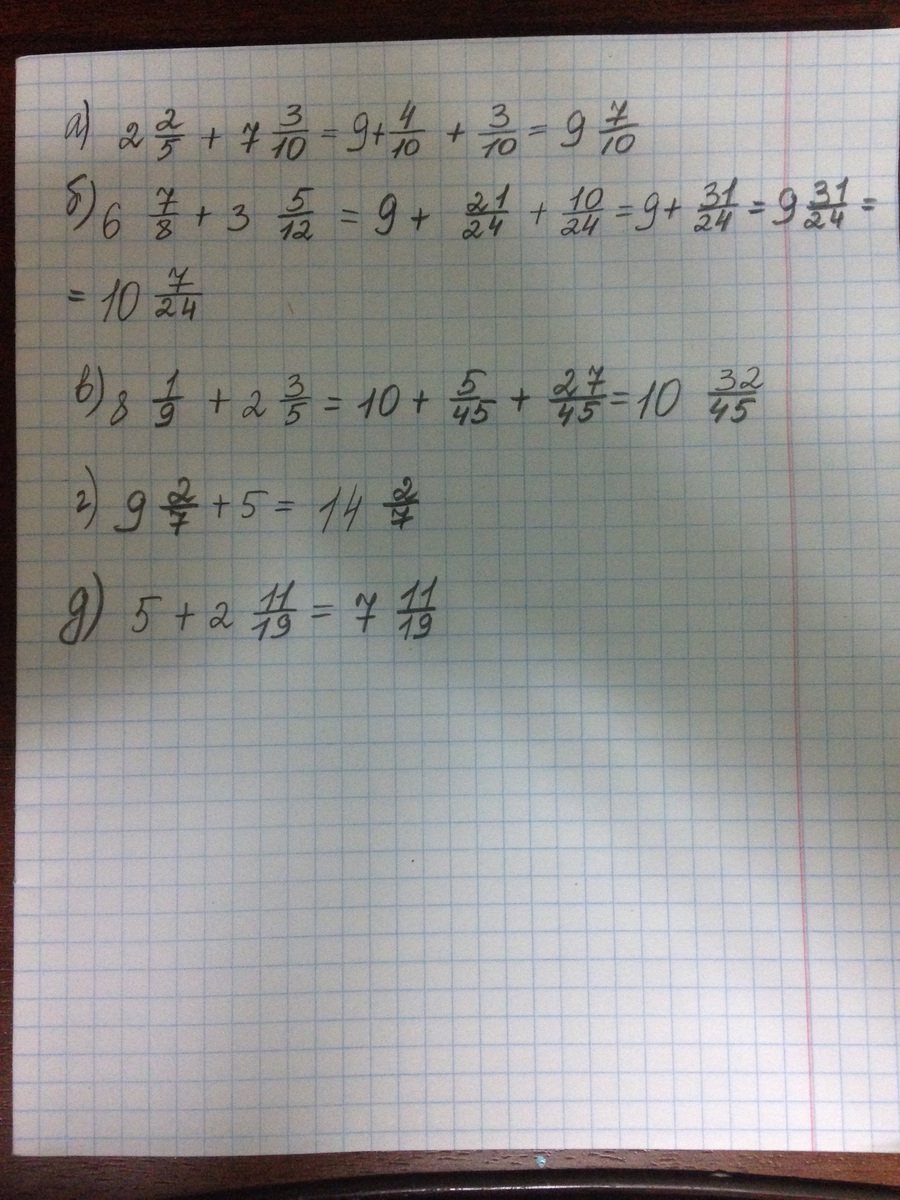 а) 2 2/5 + 7 3/10 = 9 + 4/10 + 3/10 = 9 7/10
б) 6 7/8 + 3 5/12 = 9 + 21/24 + 10/24 = 9 + 31/24 = 9 31/24 =
= 10 7/24
в) 8 1/9 + 2 3/5 = 10 + 5/45 + 27/45 = 10 32/45
г) 9 2/7 + 5 = 14 2/7
д) 5 + 2 11/19 = 7 11/19